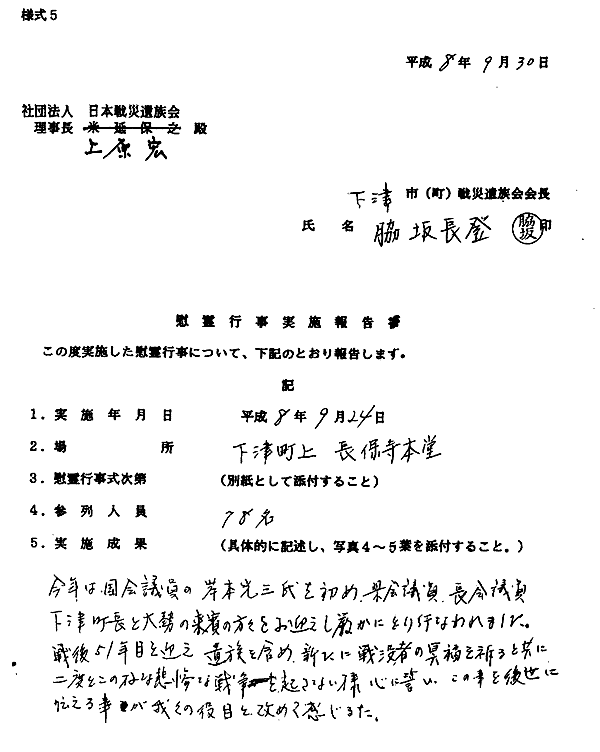 様式5
平成 8年 9月30日
社団法人 日本戦災遺族会
理事長 米延保之 殿
上原宏
下津 市(町)戦災遺族会会長
氏 名 脇坂長登 印
慰霊行事実施報告書
この度実施した慰霊行事について、下記のとおり報告します。
記
1.実施年月日 平成 8年 9月24日
2.場 所 下津町上 長保寺本堂
3.慰霊行事式次第 (別紙として添付すること)
4.参列人員 78名
5.実施成果 (具体的に記述し、写真4~5葉を添付すること。)
今年は国会議員の岸本光三氏を初め、県会議員、長会議員
下津町長と大勢の来賓の方々をお迎えし厳かにとり行なわれました。
戦後51年目を迎え 遺族を含め、新たに戦没者の冥福を祈ると共に
二度とこの様な悲惨な戦争を起さない様 心に誓い この事を後世に
伝える事が我々の役目と改めて感じた。